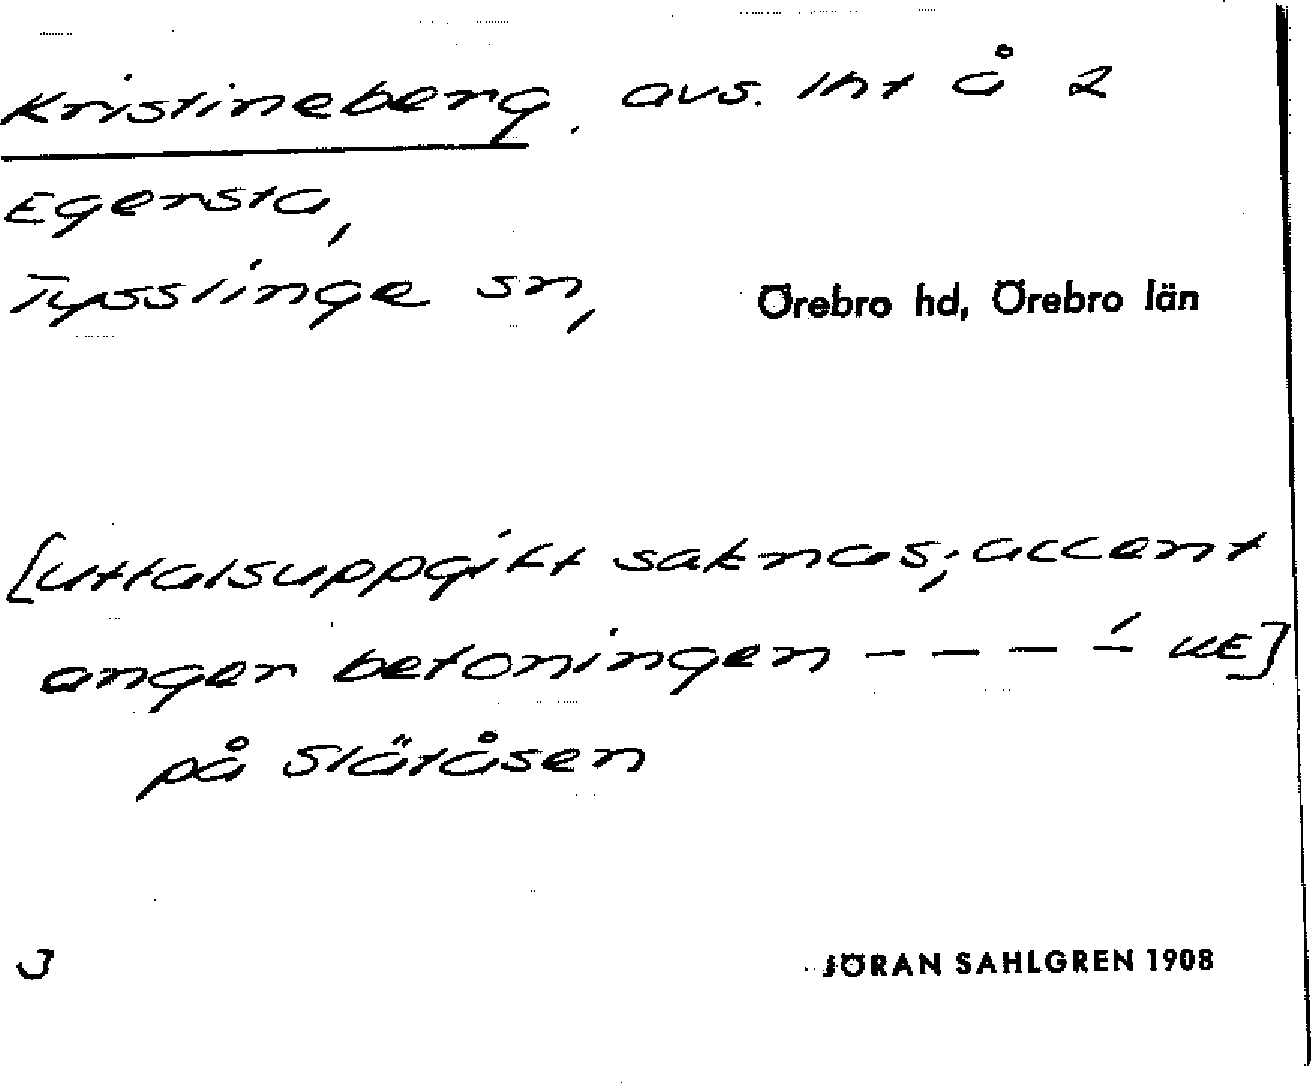 Kristineberg, avs. lht å 2
Egersta,
Tysslinge sn, Örebro hd, Örebro län
[uttalsuppgift saknas; accent
anger betoningen – – – –́ UE]
på Slätåsen
J JÖRAN SAHLGREN 1908